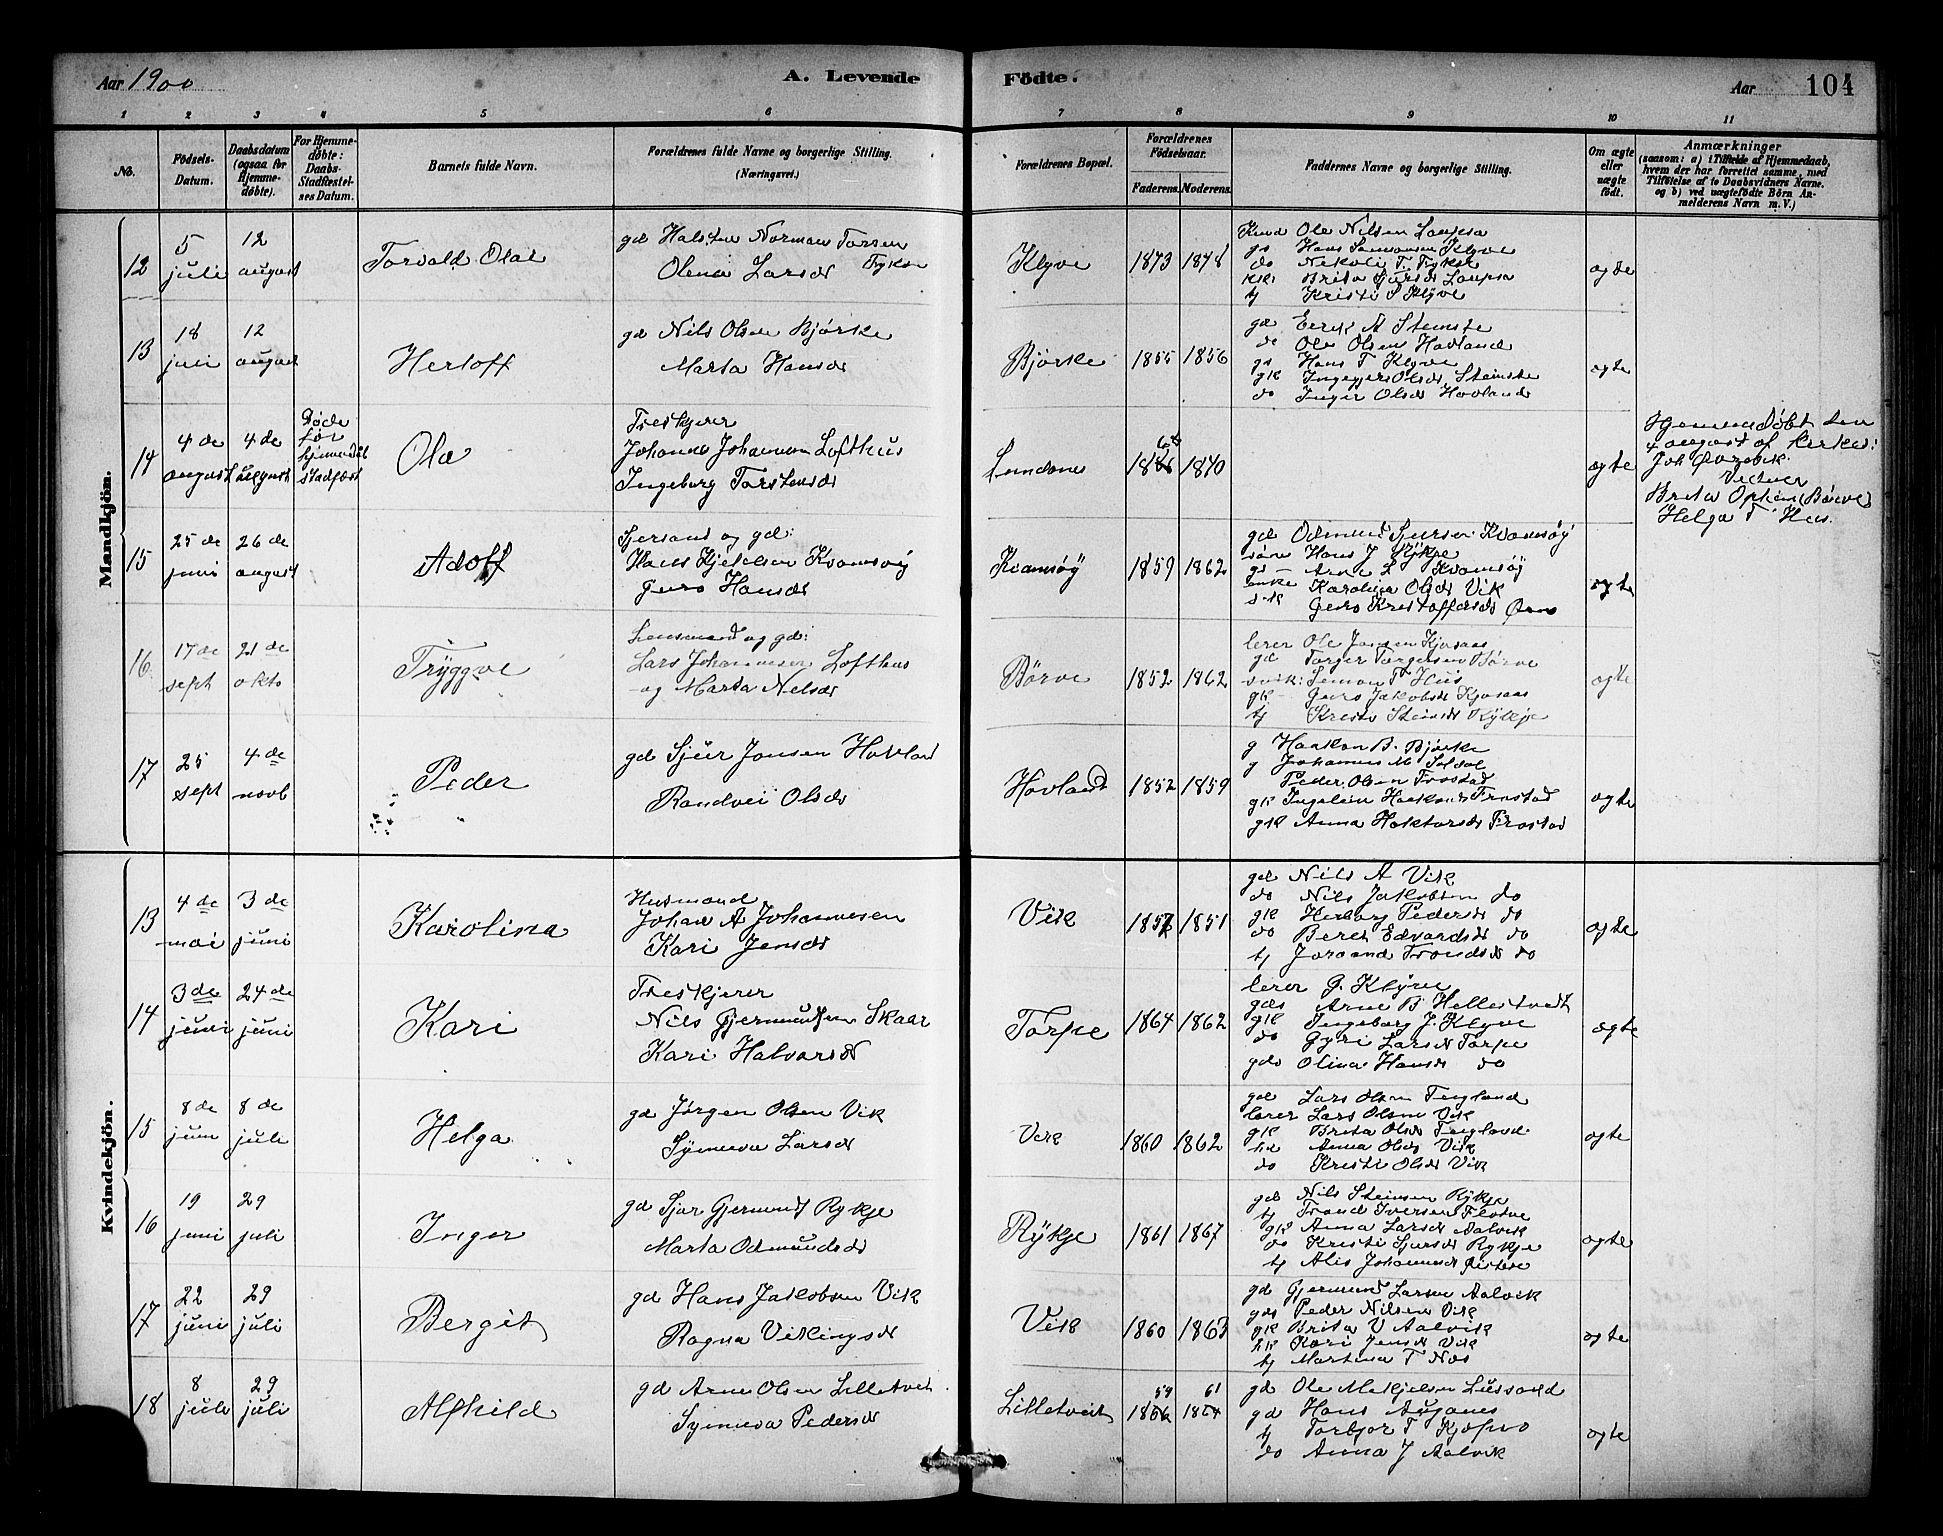 Aar 1900
A. Levende
Födte.
Aar
104
1 2 3 4 5 6 7 8 9 10 11
No.
Födsels-
Datum.
Daabsdatum
(ogsaa for
Hjemme-
døbte).
For Hjemme-
døbte:
Daabs-
Stadfæstel-
ses Datum.
Barnets fulde Navn.
Forældrenes fulde Navne og borgerlige Stilling.
(Næringsvei.)
Forældrenes Bopæl.
Forældrenes
Födselsaar.
Faderens. Moderens.
Faddernes Navne og borgerlige Stilling.
Om ægte
eller
uægte
födt.
Anmærkninger
(saasom: a) i Tilfælde af Hjemmedaab,
hvem der har forrettet samme, med
Tilföielse af to Daabsvidners Navne.
og b) ved uægtefödte Börn An-
melderens Navn m. V.)
Mandkjön.
12
5
juli
12
august
Torvald Olai
gd Halsten Norman Torsen
Olena Larsdr
Klyve
1873 1878
Ole Nilsen
Hans Klyve
do
Brita Sjursdr
tj Kristi S Klyve
13
18
juli
12
august
Herloff
gd Nils Olsen Bjørke
Marta Hansdr
Bjørke
1855 1856
gd Eerik A Steinstø
do Ole Olsen Hovland
gs Hans T Klyve
gk Olsdr Steinstø
do Inger Olsdr Hovland
ægte
14
4 de
august
4 de
august
Døde
før
stadfæst
Ola
Treskjerer
Johannes Johannesen Lofthus
Ingeborg Torstensdr
1840
ægte
Hjemmedøbt den
4 august af kirkes:
Joh
Brita (Børve)
Helga T Hus.
15
25 de
juni
26 de
august
Adolf
og gd:
Hans Kjetelsen Kvamsøy
Guro Hansdr
Kvamsøy
1859 1862
gd Odmund Sjursen Kvamsøy
Hans J Rykje
gs Arne L Kvamsøy
enke Karolina Olsdr Vik
Guro Kristoffersdr
ægte
16
17 de
sept
21 de
okto
Tryggve
Lensmand og gd:
Lars Johannesen Lofthus
og Marta Nelsdr
Børve
1852 1862
lerer Ole Jonsen Kjosaas
gd Torger Torgersen Børve
Simon T Hus
gk Guro Jakobsdr Kjosaas
tj Kristi Steinsdr Rykje
ægte
17
25
sept
4 de
novb
Peder
gd Sjur Jonsen Hovland
Randvei Olsdr
Hovland
1852 1859
g Haakon B. Bjørke
g Johannes M
Peder Olsen Frostad
gk Haakonsdr Frostad
gk Anna Frostad
ægte
Kvindekjön.
13
4 de
mai
3 de
juni
Karolina
Husmand
Johan A Johannesen
Kari Jensdr
Vik
1851
gd Nils A Vik
do Nils Jakobsen do
gk Herborg Pedersdr do
do Beret Edvardsdr do
tj Joraand Trondsdr do
ægte
14
3 de
juni
24 de
juni
Kari
Treskjerer
Nils Gjermundsen Skaar
Kari Halvorsdr
Torpe
1864 1862
lerer G. Klyve
gds Arne B Hellestvedt
gk Ingeborg J. Klyve
do Gyri Larsdr Torpe
gds Olina Hansdr do
ægte
15
8 de
juni
8 de
juli
Helga
gd Jørgen Olsen Vik
Synneva Larsdr
Vik
1860 1862
gd Lars Olsen
lerer Lars Olsen Vik
gk Brita Olsdr
Anna Olsdr Vik
do Kristi Olsdr Vik
ægte
16
19
juni
29
juli
Inger
gd Sjur Gjermunds Rykje
Marta Odmundsdr
Rykje
1861 1867
gd Nils Steinsen Rykje
tj Trond Iversen
gk Anna Larsdr Aalvik
do Kristi Sjursdr Rykje
tj Alis Johannesdr
ægte
17
22
juni
29
juli
Bergit
gd Hans Jakobsen Vik
Ragna Vikingsdr
Vik
1860 1863
gd Gjermund Larsen Aalvik
gds Peder Nilsen Vik
gk Brita V Aalvik
Kari Jensdr Vik
tj Martina T Næs
ægte
18
8
juli
29
juli
Alfhild
gd Arne Olsen Lilletveit
Synneva Pedersdr
Lilletveit
59 61
gd Ole Mikjelsen Lussand
gd Hans
tj Torbjor T
do Anna J Aalvik
ægte